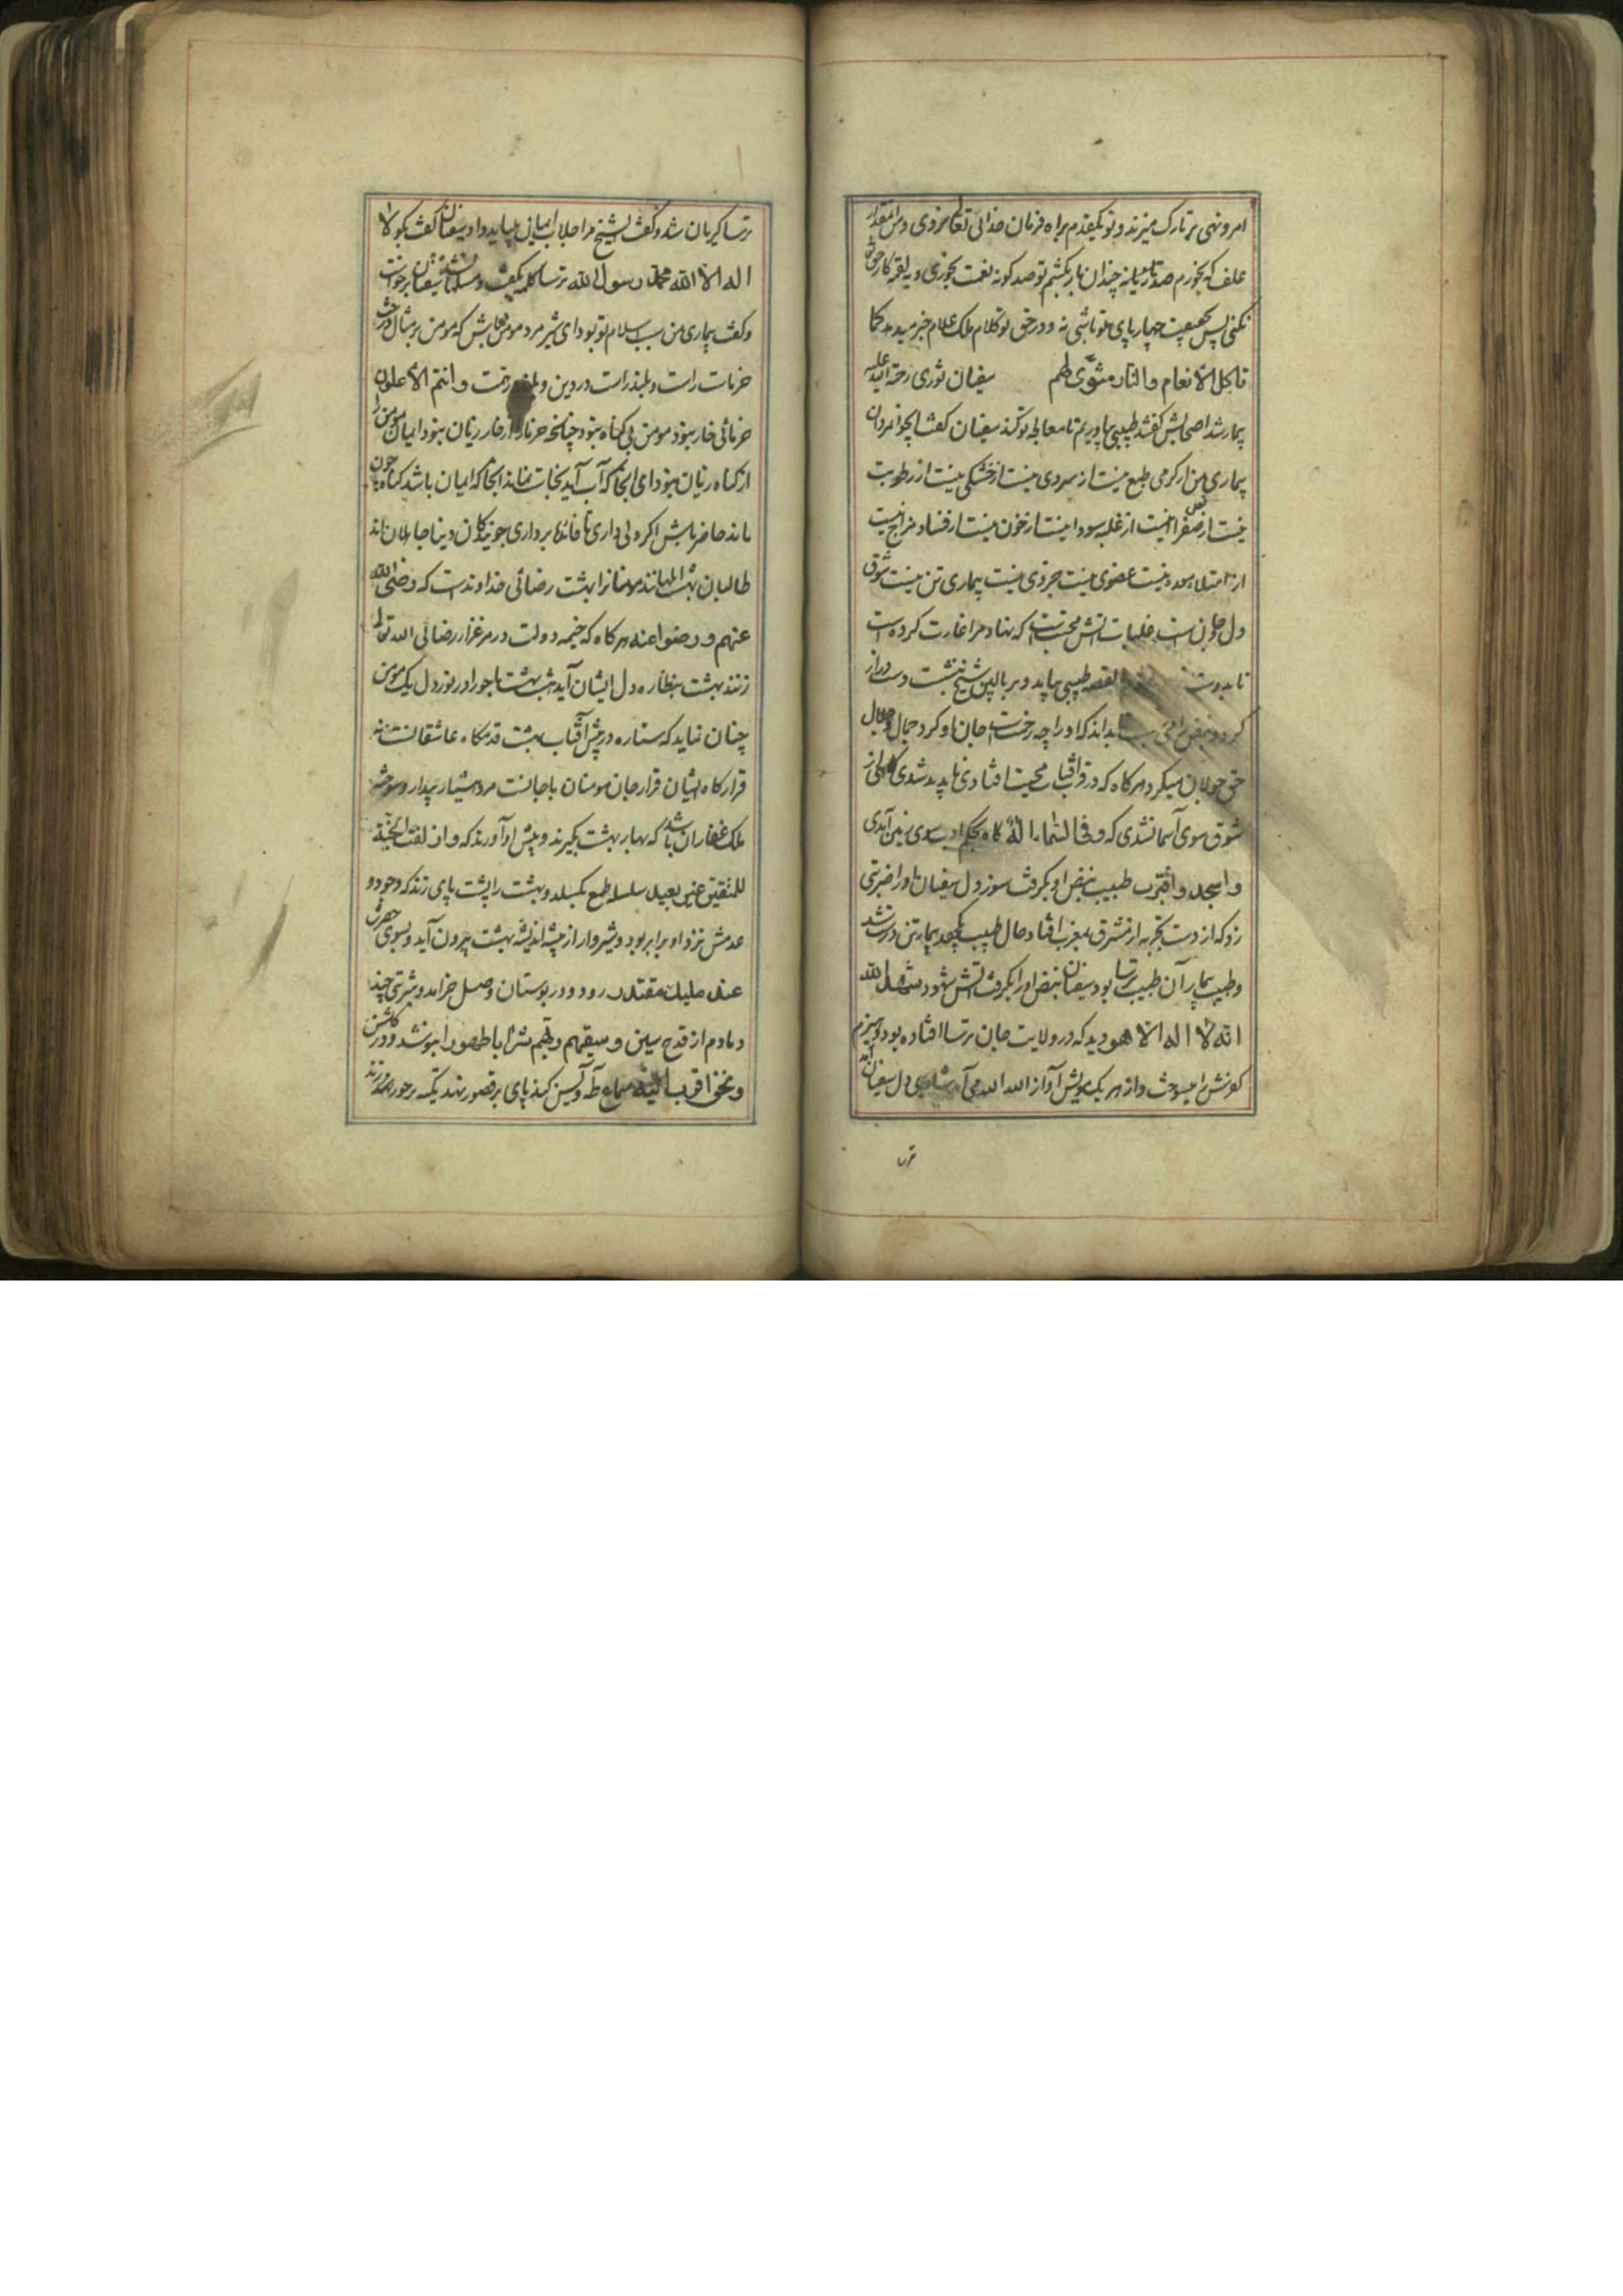 امر و نهی بر تارک میزند و تو یکقدم براه فرمان خدای تعالی نروی و من اینقدر
علف که بخورم صد تازیانه چندان بار بکشم تو صد کونه نعمت بخوری و یه لقمه کار حق
نکنی پس بحقیقت چهارپای تو باشی نه و در حق تو کلام ملک علام خبر میدهد کما
تاکل الانعام والنار مثوی لهم سفیان ثوری رحمة الله علیه
بیمار شد اصحابش کفتند طبیبی بیاوریم تا معالجه تو کند سفیان کفت ایجوانمردان
بیماری من از کرمی طبع نیست از سردی نیست از خشکی نیست از رطوبت
نیست از صفرا نیست از غلبه سودا نیست از خون نیست از فساد مزاج نیست
از امتلاء معده نیست عضوی نیست جزوی نیست بیماری تن نیست شوق
دل و جان است غلبات آتش محبت است که نهاد مرا غارت کرده است
تا بدوست القصه طبیبی بیاید و بر بالین شیخ بنشست و دست دراز
کرد و نبض بداند که او را چه رنجست جان او کرد جمال و جلال
حق جولان میکرد هر کاه که در قراقبات محبت افتادی ناپدید شدی کاهی از
شوق سوی آسمان شدی که وفی السماء اله کاه بحکم ادب سوی زمین آمدی
واسجد واقترب طبیب نبض او بکرفت سوز دل سفیان او را ضربتی
زد که از دست تجربه از مشرق بمغرب افتاد حال طبیب بیمار تن درست شد
و طبیب بیمار آن طبیب ترسا بود سفیان نبض او را بکرفت آتش شهود شهد الله
انه لا اله الا هو دید که در ولایت جان ترسا افتاده بود و هیزم
کفرش را میسوخت و از هر یک مویش آواز الله الله می آمد دل سفیان
ترسا کریان شد و کفت ای شیخ مرا جلاب ایمان بیاید داد سفیان کفت بکو لا
اله الا الله محمد رسول الله ترسا کلمه بکفت و مسلمان شد سفیان برخواست
و کفت بیماری من سبب اسلام تو بود ای شیر مرد مومن باش که مومن بر مثال درخت
خرماست راست و بلند راست در دین و بلند همت وانتم الاعلون
خرمائی خار نبود مومن بی کناه نبود چنانکه خرما را از خار زیان نبود ایمان مومن را
از کناه زیان نبود ای آنجا که آب آید نجاست نماند آنجا که ایمان باشد کناه چون
ماند حاضر باش اکر دلی داری تا فائدها برداری جویندکان دنیا جاهلان اند
طالبان بهشت ابلهانند مومنانرا بهشت رضائی خداوندست که رضی الله
عنهم ورضوا عنه هر کاه که خیمه دولت در مرغزار رضائی الله تعالی
زنند بهشت بنظاره دل ایشان آید هشت بهشت با حور او در نور دل یک مومن
چنان نماید که ستاره در پیش آفتاب بهشت قدمکاه عاشقانست نه
قرارکاه ایشان قرار جان مومنان با جانانست مرد هشیار بیدار و سوخته
ملک غفاران باشد که بهار بهشت بکیرند و پیش او آورند که وازلفت الجنة
للمتقین غیر بعید سلسله طمع بکسلد و بهشت را پشت پای زند که وجود و
عدمش نزد او برابر بود و شیروار از بیشه اندیشه بهشت بیرون آید و بسوی حضرت
عند ملیک مقتدر رود و در بوستان وصل خرامد و شربتی چند
دمادم از قدح یسین و سقیهم ربهم شرابا طهورا بنوشد و در کلشن
ونحن اقرب الیه سماع طه و یسن کند پای بر قصور نهد تکیه بر حور نزند
تر